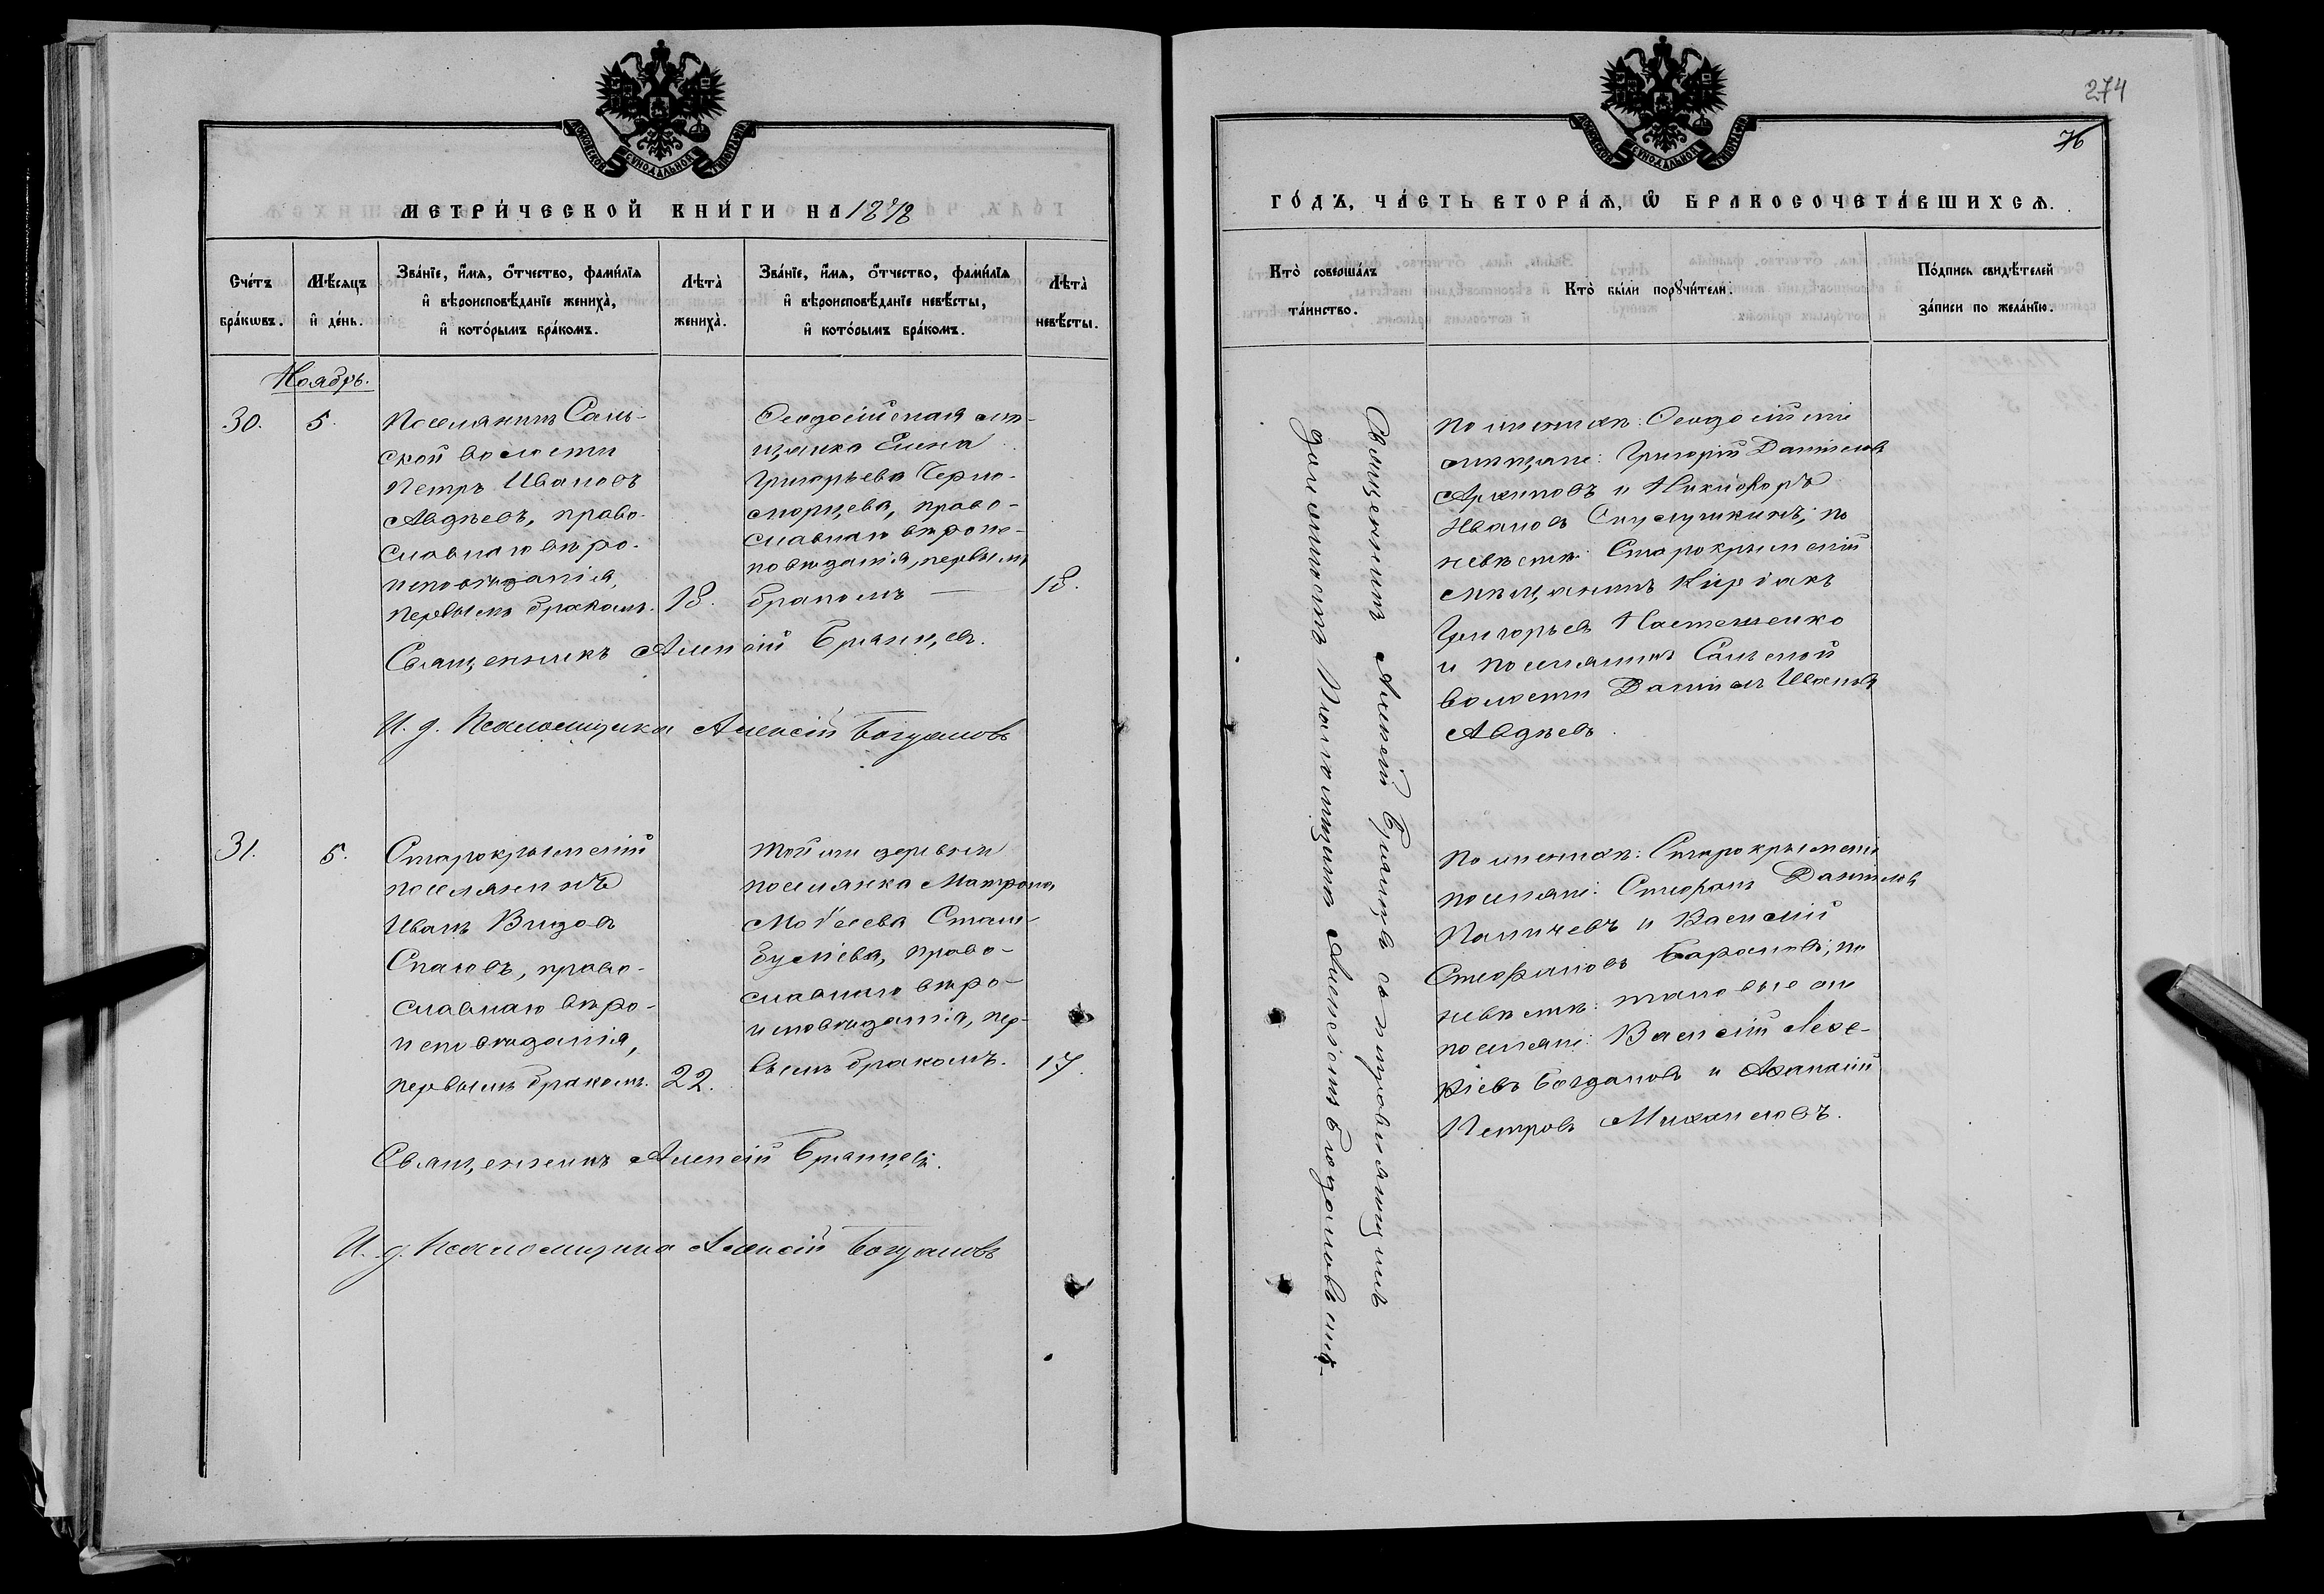 МОСКОВСКОЙ СУНОДАЛЬНОЙ ТИПОГРАФIИ
МЕТРИ́ЧЕСКОЙ КНИ́ГИ НА 1878
Сче́тъ бра́кωвъ.
Мѣ́сяцъ и҆ де́нь.
Зва́нїе, и҆́мя, ѻ҆́тчество, фами́лїя и҆ вѣроисповѣ́данїе жениха̀, и҆ кото́рымъ бра́комъ.
Лѣта̀ жениха̀.
Зва́нїе, и҆́мя, ѻ҆́тчество, фами́лїя и҆ вѣроисповѣ́данїе невѣ́сты, и҆ кото́рымъ бра́комъ.
Лѣта̀ невѣ́сты.
Ноябрь.
30.
5.
Поселянинъ Саль-
ской волости
Петръ Ивановъ
Авдѣевъ, право-
славнаго вѣро-
исповѣданія,
первымъ бракомъ.
18.
Ѳеодосійская мѣ-
щанка Елена
Григорьева Черно-
морцева, право-
славнаго вѣроис-
повѣданія, первымъ
бракомъ —
18.
Священникъ Алексій Брянцевъ.
И. д. Псаломщика Алексій Богдановъ
31.
5.
Старокрымскій
поселянинъ
Иванъ Видовъ
Спасовъ, право-
славнаго вѣро-
исповѣданія,
первымъ бракомъ.
22.
Той же деревни
поселянка Матрона
Моѵсеева Стам-
буліева, право-
славнаго вѣро-
исповѣданія, пер-
вымъ бракомъ.
17.
Священникъ Алексій Брянцевъ.
И. д. Псаломщика Алексій Богдановъ
274
76
МОСКОВСКОЙ СУНОДАЛЬНОЙ ТИПОГРАФIИ
ГО́ДЪ, ЧА́СТЬ ВТОРА́Я, Ѽ БРАКОСОЧЕТА́ВШИХСЯ.
Кто̀ соверша́лъ та́инство.
Кто̀ бы́ли порꙋчи́тели.
По́дпись свидѣ́телей за́писи по жела́нїю.
Священникъ Алексій Брянцевъ съ исправляющимъ
должность Псаломщика Алексіемъ Богдановымъ.
По женихѣ: Ѳеодосійскіе
мѣщане: Григорій Даниловъ
Архиповъ и Никифоръ
Ивановъ
невѣстѣ: Старокрымскій
мѣщанинъ Киріакъ
Григорьевъ Настенко
и поселянинъ Сальской
волости Даніилъ Ивановъ
Авдѣевъ.
По женихѣ: Старокрымскіе
поселяне: Стефанъ Даниловъ
Паничевъ и Василій
Стефановъ Барановъ; по
невѣстѣ: таковые же
поселяне: Василій
Богдановъ и Аѳанасій
Петровъ Михайловъ.